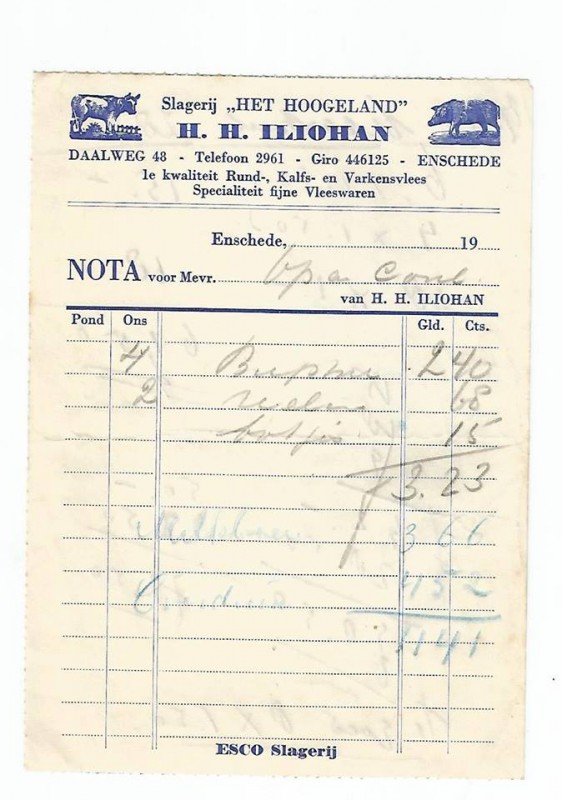 Slagerij „HET HOOGELAND"
H. H. ILIOHAN
DAALWEG 48 - Telefoon 2961 - Giro 446125 - ENSCHEDE
1e kwaliteit Rund-, Kalfs- en Varkensvlees
Specialiteit fijne Vleeswaren
Enschede, 19
NOTA voor Mevr. Opa
van H. H. ILIOHAN
Pond Ons Gld. Cts.
4 2 40
2 68
botjes 15
3.23
3 66
4 52
11 41
ESCO Slagerij